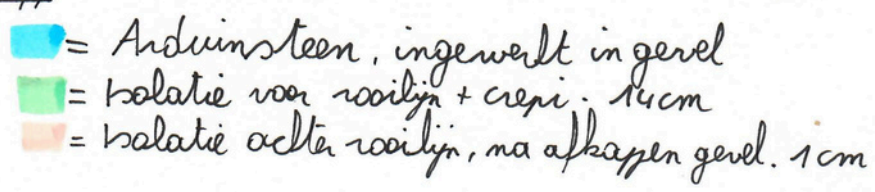 = Arduinsteen, ingewerkt in gevel
= Isolatie voor rooilijn + crepi. 14cm
= Isolatie achter rooilijn, na afkappen gevel. 1cm